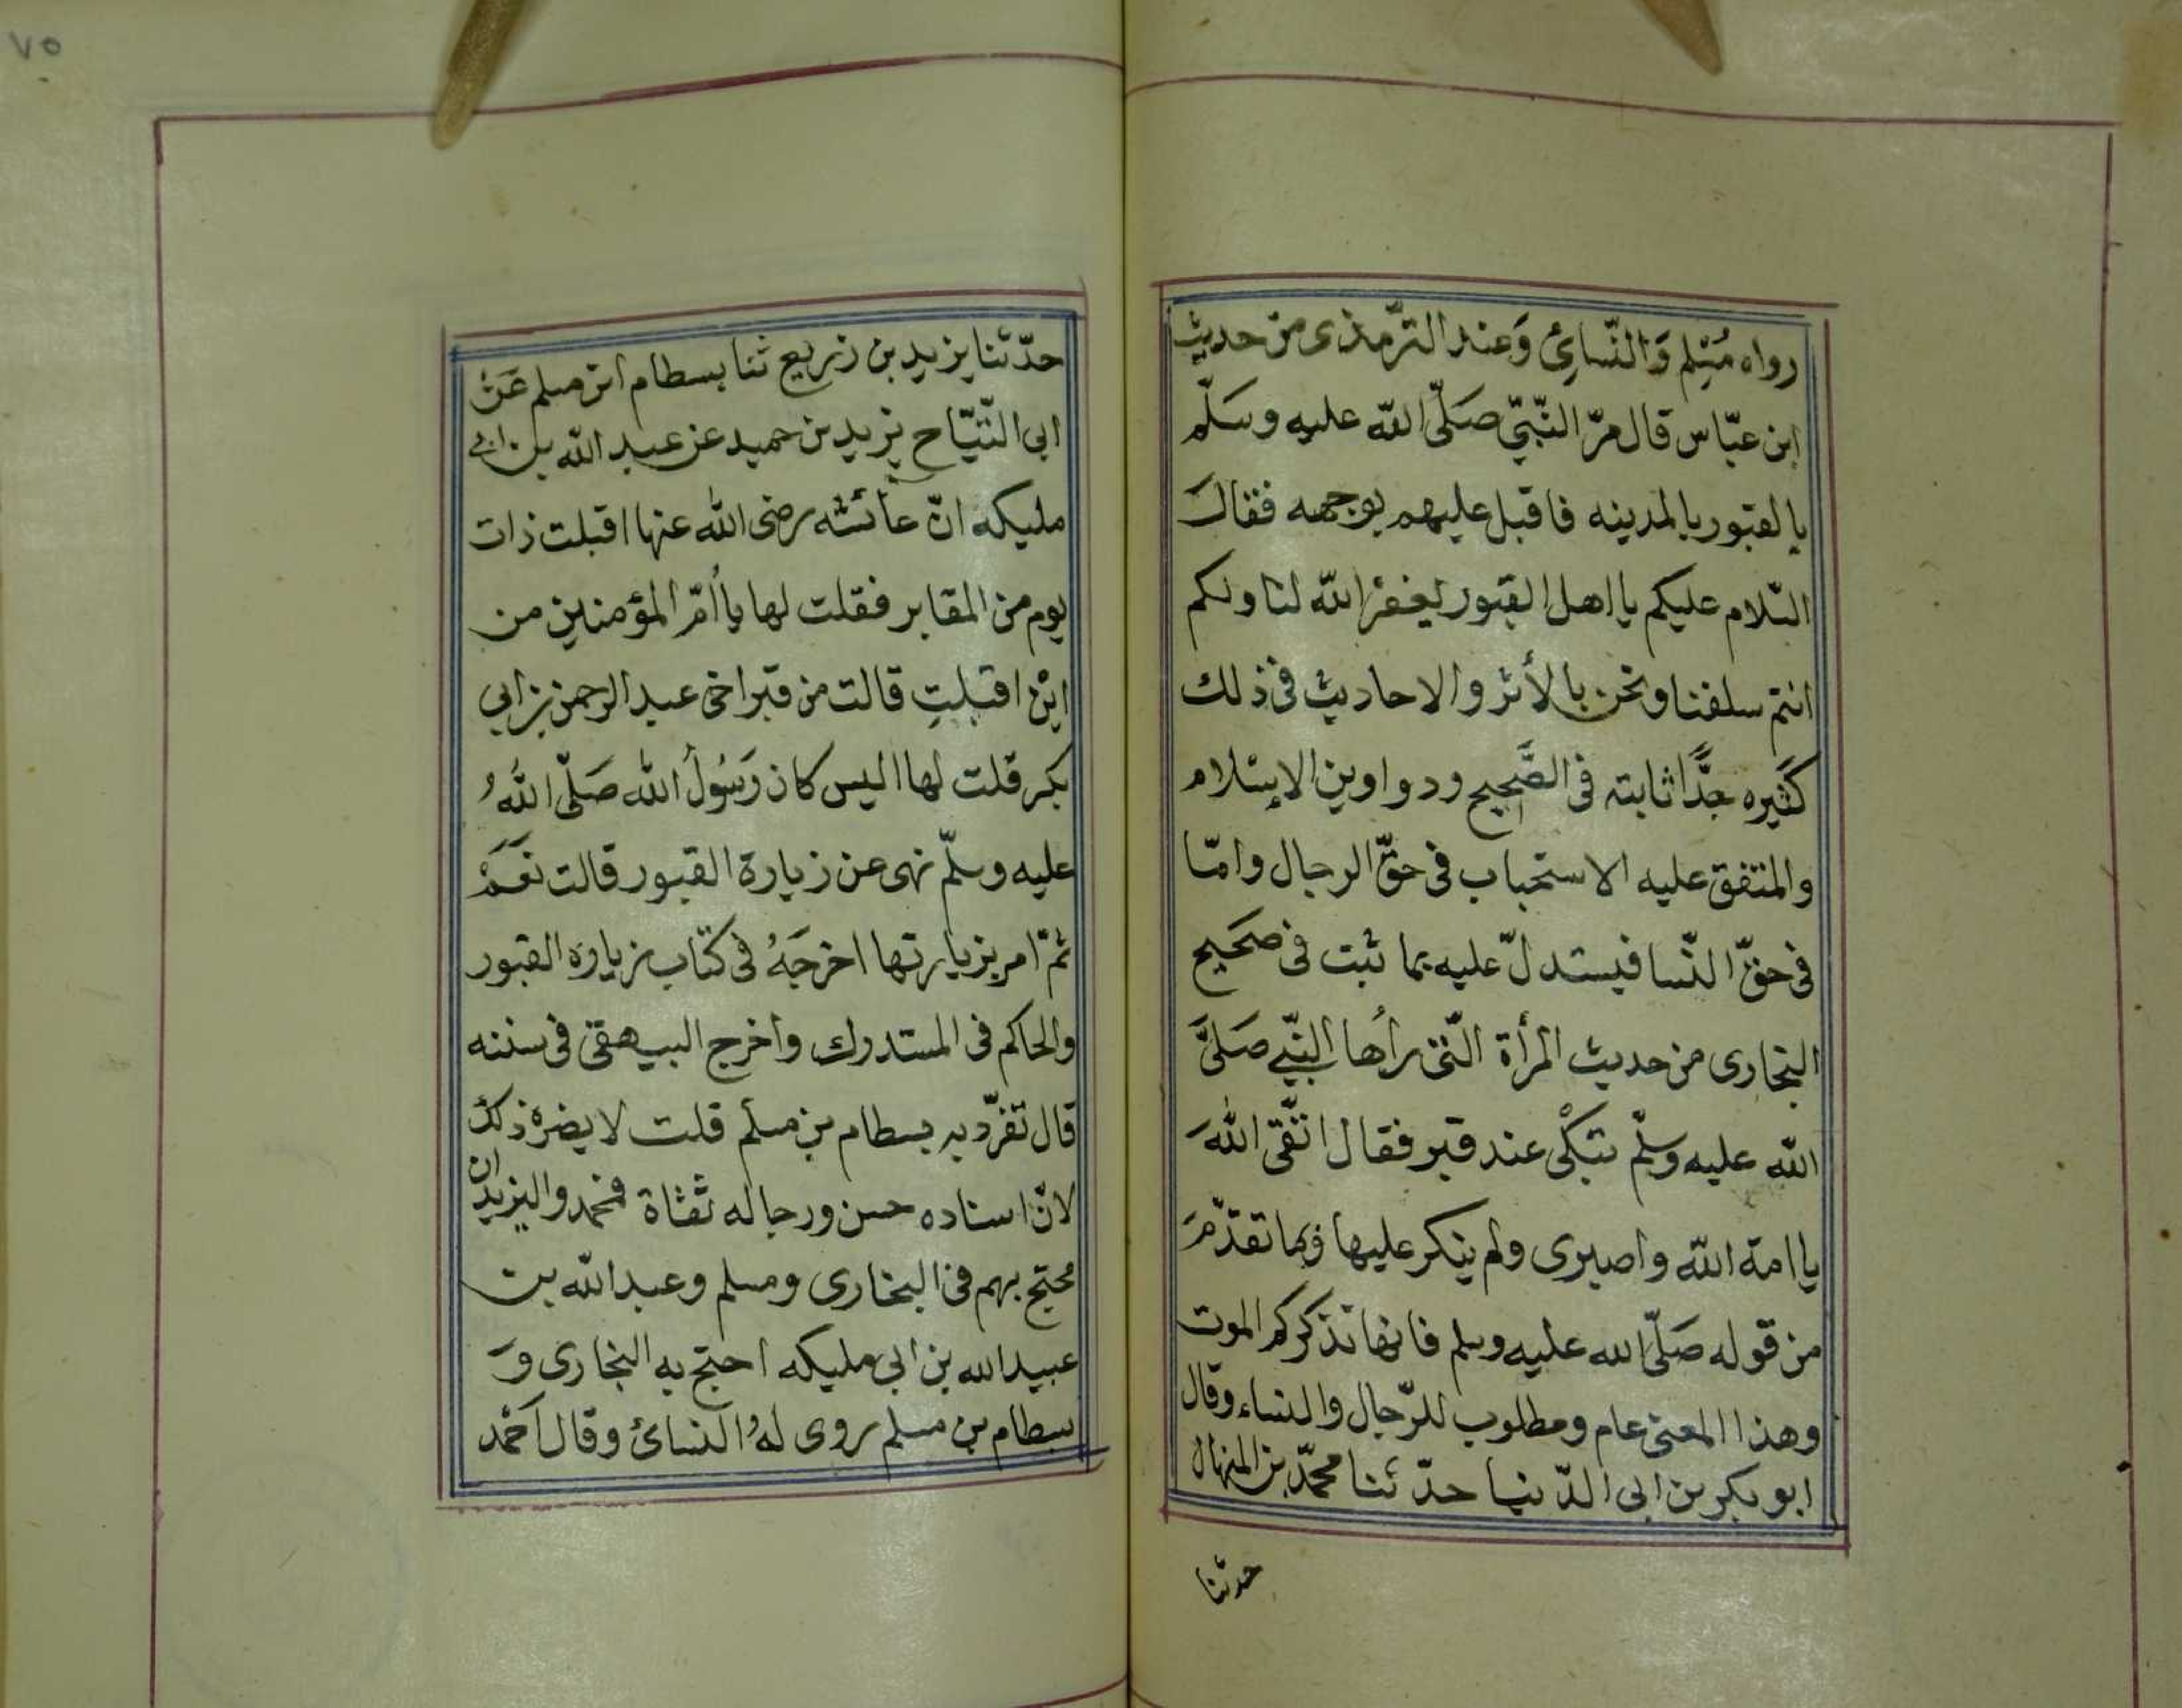 رواه مُسْلم وَالنّسائيُ وَعند الترّمذى من حديث
ابن عبّاس قال مرّ النّبيّ صَلّى اللّه عليه وسَلّم
بالقبور بالمدينه فاقبل عليهم بوجهه فقالَ
السّلام عليكم يا اهل القبور يغفر اللّه لنا ولكم
انتم سلفنا ونحن بالأثر والاحاديث فى ذلك
كَثيره جدًّا ثابته فى الصَّحيح ودواوين الإسلام
والمتفق عليه الاستحباب فى حقّ الرجال وامّا
فى حقّ النّسا فيستدلّ عليه بما ثبت فى صَحَيح
البخارى من حديث المرأة الّتى رأها النّبي صَلىَّ
اللّه عليه وسلّم تبكْى عند قبر فقال اتّقى اللّهَ
يا امة اللّه واصبرى ولم ينكر عليها وبما تقدّمَ
من قوله صَلّى الله عليه وسلم فانها تذكركم الموت
وهذا المعنى عام ومطلوب للرّجال والنساء وقال
ابو بكر بن ابى الدّنيا حدّثنا محمّد بن المنهال
حدثنا
٧٥
حدّثنا يزيد بن زريع ثنا بسطام ابن مسلم عَنْ
ابى التّيّاح يزيد بن حميد عن عبد اللّه بن ابي
مليكه انّ عائشه رضى اللّه عنها اقبلت ذات
يوم من المقابر فقلت لها يا أُمّ المؤمنين من
ايْن اقبلتِ قالت من قبر اخى عبد الرحمن بن ابي
بكر قلت لها اليس كان رَسُولُ اللّه صَلّى اللّهُ
عليه وسلّم نهى عن زيارة القبور قالت نعَمْ
ثمّ امر بزيارتها اخرجَهُ فى كتاب زيارة القبور
والحاكم فى المستدرك واخرج البيهقى فى سننه
قال تفرّد به بسطام بن مسلم قلت لا يضرهُ ذلك
لانّ اسناده حسن ورجاله ثقاة فمحمد واليزيدان
محتج بهم فى البخارى ومسلم وعبد اللّه بن
عبيد الله بن ابى مليكه احتج به البخارى وَ
بسطام بن مسلم روى لهُ النسائ وقال احْمد